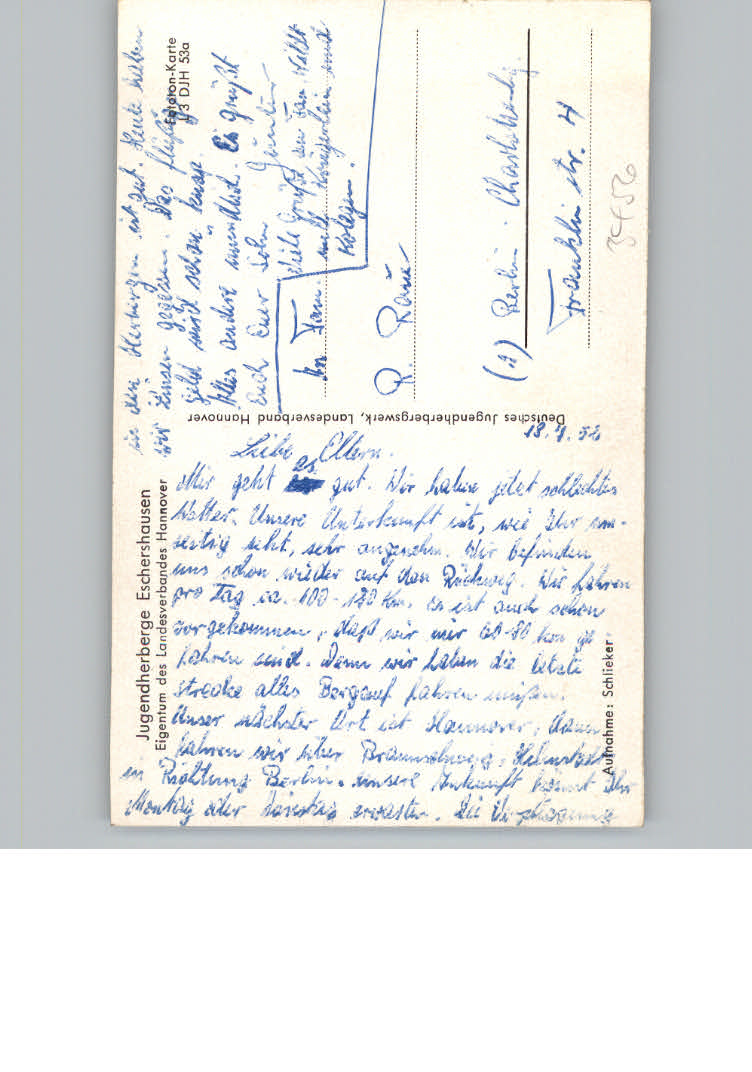 Jugendherberge Eschershausen
Eigentum des Landesverbandes Hannover
18.4.56
Liebe Eltern.
Mir geht es gut. Wir haben jetzt schlechtes
Wetter. Unsere Unterkunft ist, wie Ihr um-
seitig seht, sehr angenehm. Wir befinden
uns schon wieder auf den Rückweg. Wir fahren
pro Tag ca. 100-120 Km. es ist auch schon
vorgekommen, daß wir nur 60-80 km ge
fahren sind. Denn wir haben die letzte
strecke alles Bergauf fahren müssen.
Unser nächster Ort ist Hannover, dann
fahren wir über Braunschweig, Helmstedt
in Richtung Berlin. unsere Ankunft könnt Ihr
Montag oder Dienstag erwarten. Die Verpflegung
in den Herbergen ist gut. Heute haben
wir Linsen gegessen. Das flüßige
geld wird schon knap.
Alles andre mündlich. Es grüßt
Euch Euer Sohn Günter
Viele Grüße an Fam. Walter
und
Kolegen.
Deutsches Jugendherbergswerk, Landesverband Hannover
Fotoron-Karte
L/3 DJH 53a
An Fam.
R.
Berlin - Charlottenbg.
Franklin str. 4
3456
Aufnahme: Schlieker